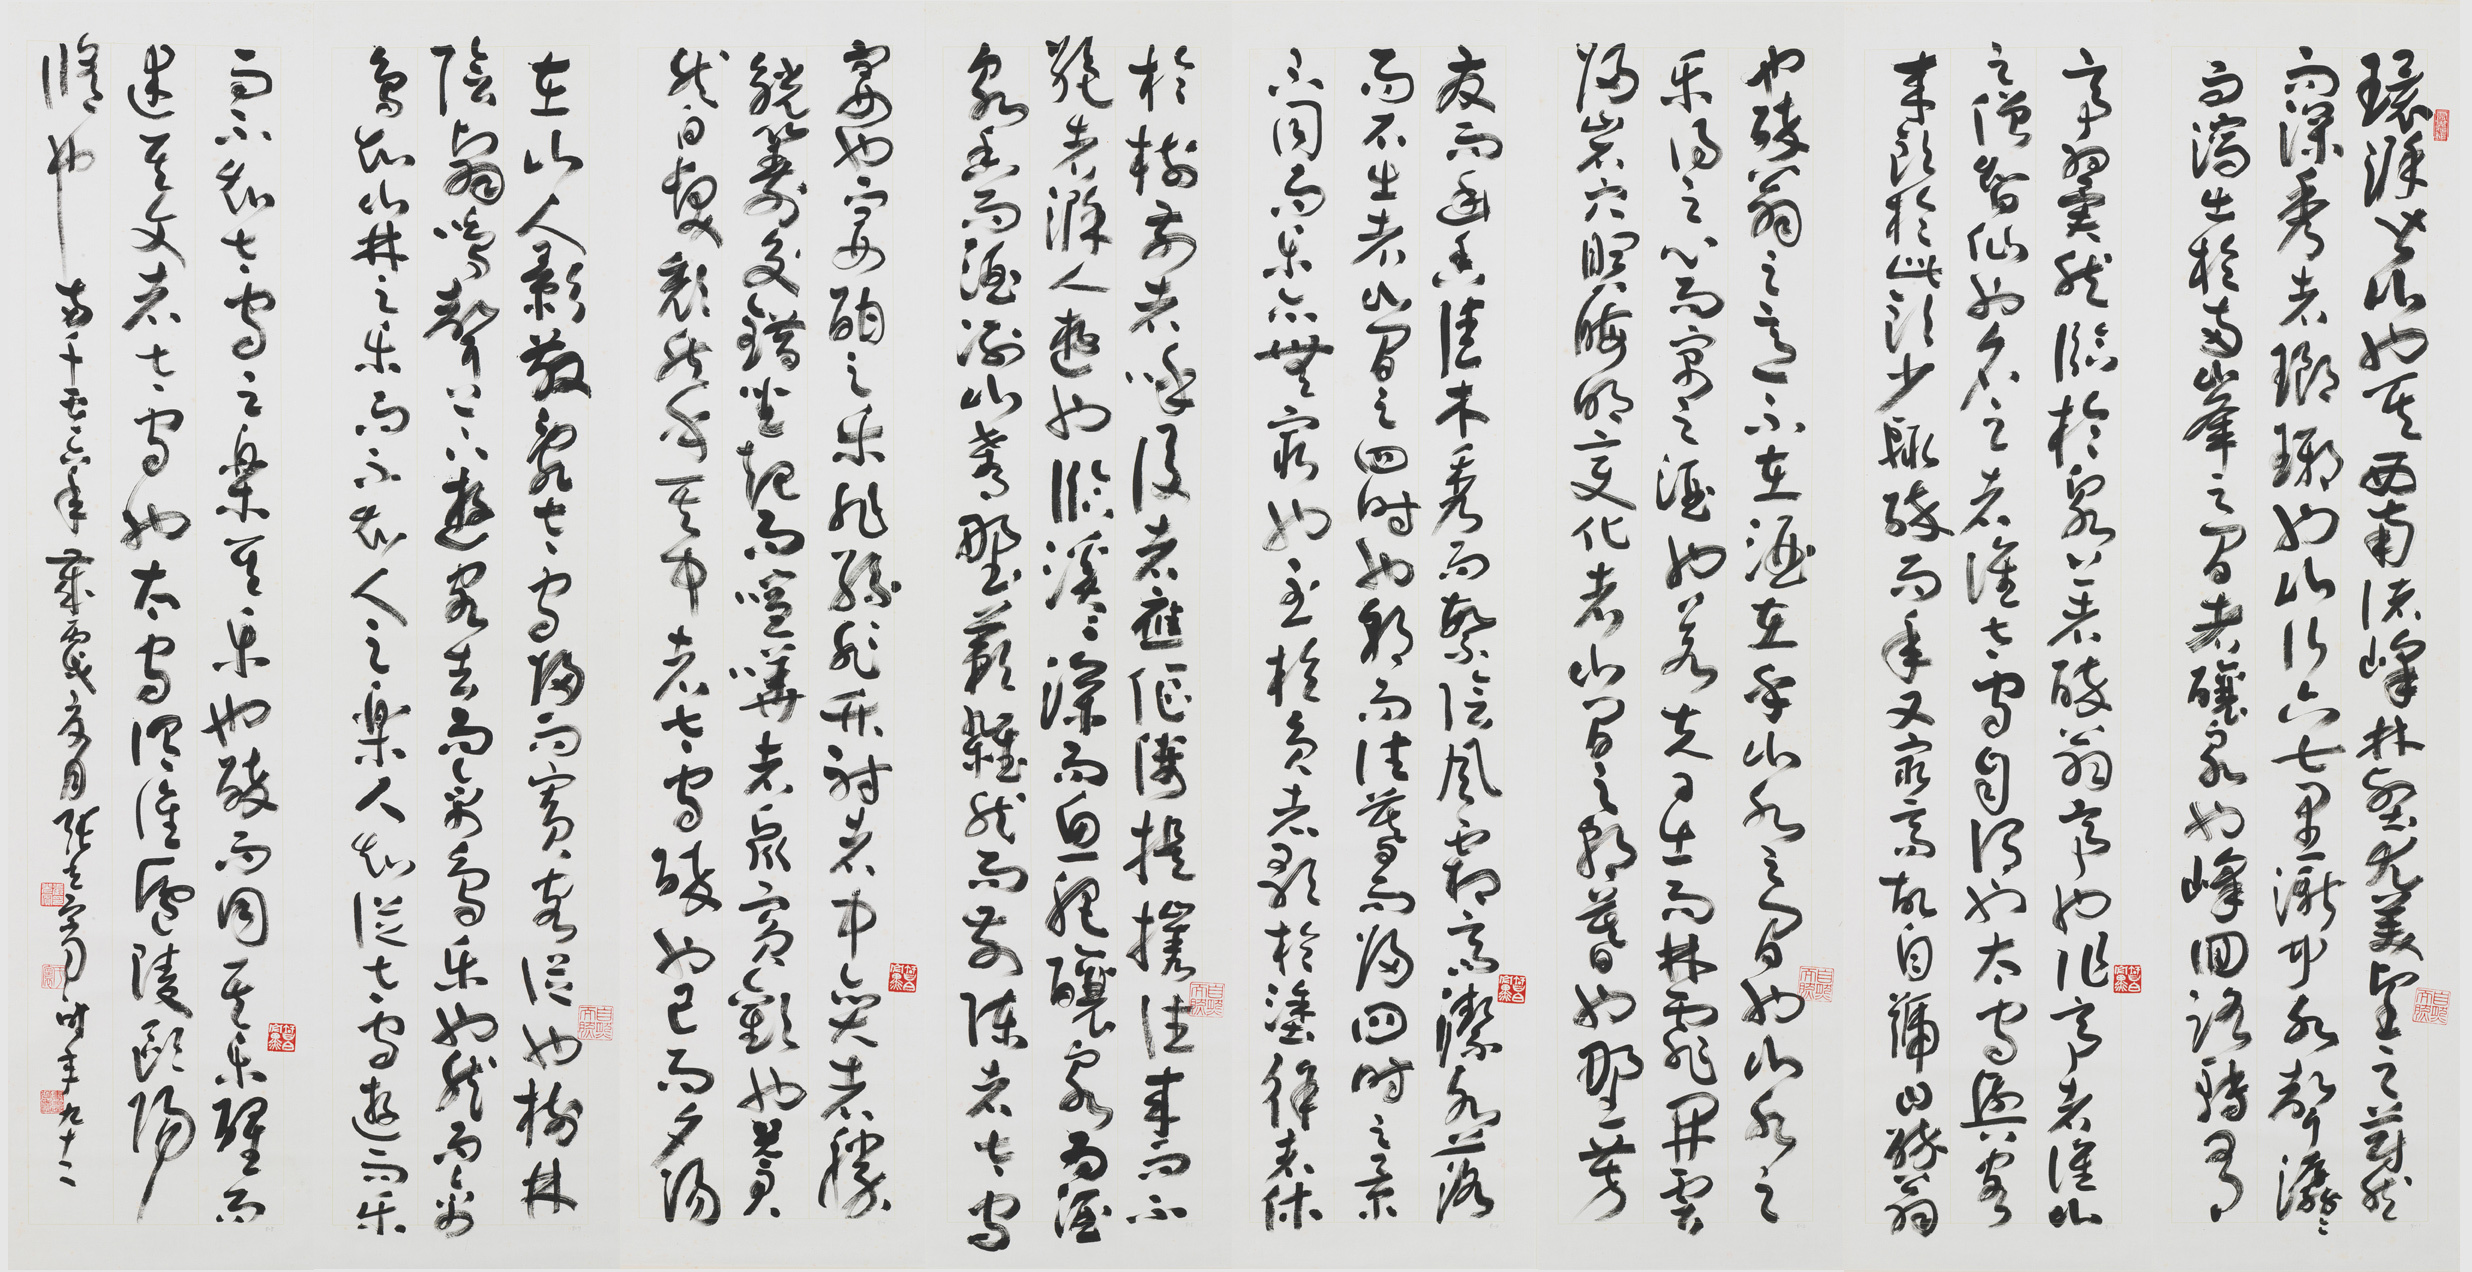 環滁皆山也其西南諸峰林壑尤美望之蔚然
而深秀者瑯琊也山行六七里漸聞水聲潺潺
而瀉出於兩峰之間者釀泉也峰回路轉有
亭翼然臨於泉上者醉翁亭也作亭者誰山
之僧智仙也名之者誰太守自謂也太守與客
來飲於此飲少輒醉而年又最高故自號曰醉翁
也醉翁之意不在酒在乎山水之間也山水之
樂得之心而寓之酒也若夫日出而林霏開雲
歸岩穴暝晦明變化者山間之朝暮也野芳
發而幽香佳木秀而繁陰風霜高潔水落
而石出者山間之四時也朝而往暮而歸四時之景
不同而樂亦無窮也至於負者歌於塗行者休
於樹前者呼後者應傴僂提攜往來而不
絕者滁人遊也臨溪溪深而魚肥釀泉為酒
泉香而酒洌山肴野蔌雜然而前陳者太守
宴也宴酣之樂非絲非竹射者中弈者勝
觥籌交錯坐起而喧譁者眾賓歡也蒼
然白髮頹然乎其中者太守醉也已而夕陽
在山人影散亂太守歸而賓客從也樹林
陰翳鳴聲上下遊客去而禽鳥樂也然而禽
鳥知山林之樂而不知人之樂人知從太守遊而樂
而不知太守之樂其樂也醉而同其樂醒而
述其文者太守也太守謂誰廬陵歐陽
脩也 兩千零六年歲丙戌夏月張光賓時年九十二